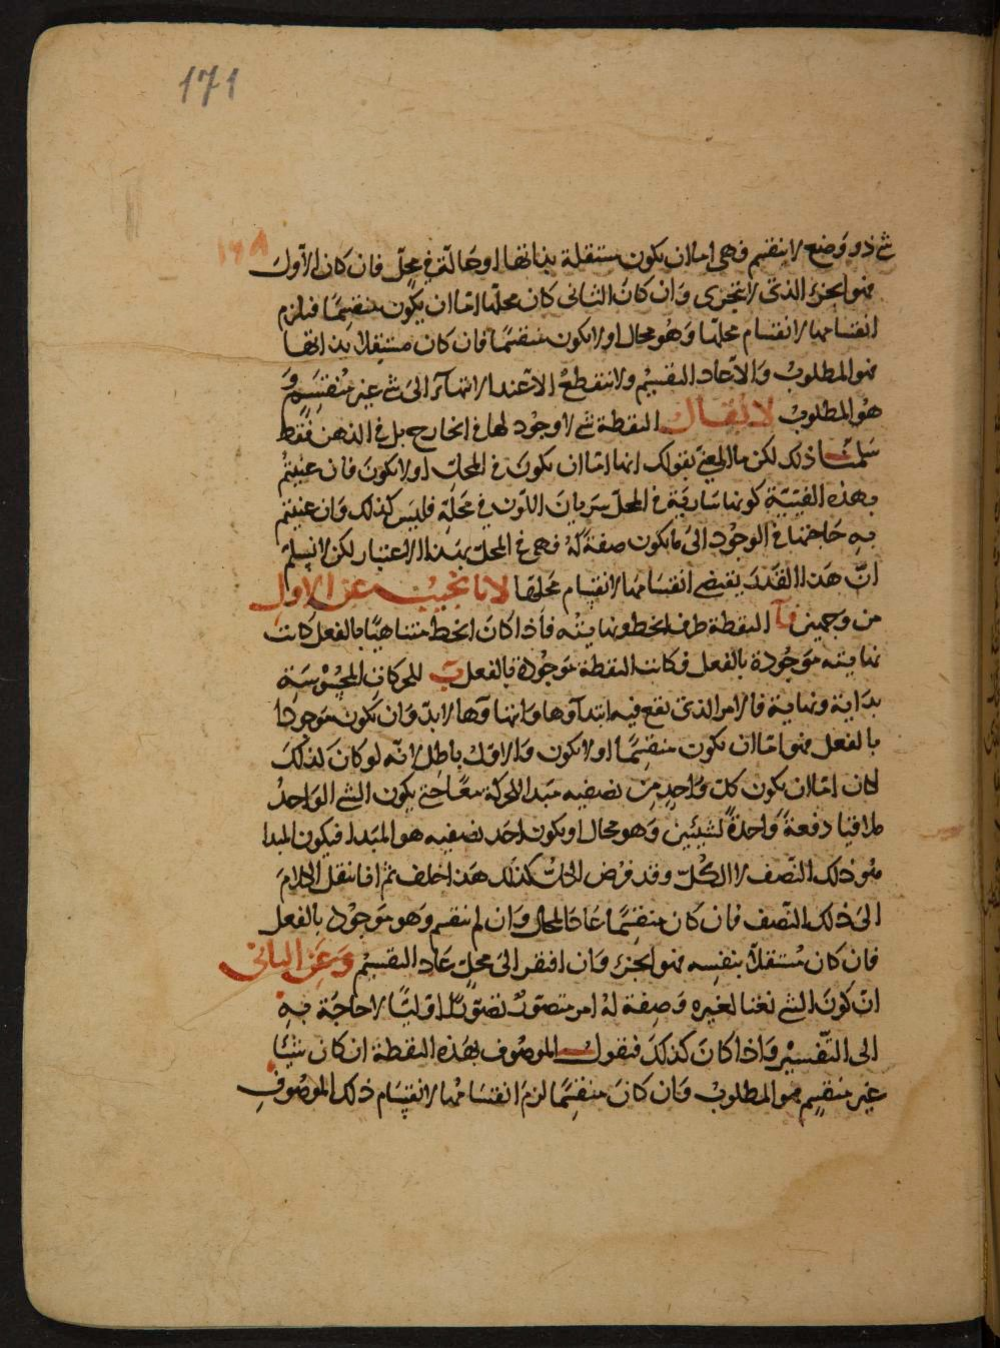 171
١٦٨
شئ ذو وضع لا ينقسم فهى اما ان يكون مستقلة بذاتها او حالة فى محل فان كان الاول
فهو الجزء الذى لا يتجزى وان كان الثانى كان محلها اما ان يكون منقسما فيلزم
انقسامها لانقسام محلها وهو محال او لا يكون منقسما فان كان مستقلا بذاتها
فهو المطلوب والا عاد التقسيم ولا ينقطع الا عند الانتهاء الى شئ غير منقسم و
هو المطلوب لا يقال النقطة شئ لا وجود لها فى الخارج بل فى الذهن فقط
سلمنا ذلك لكن ما المعنى بقولك انها اما ان يكون فى المحل او لا يكون فان عنيتم
بهذه الفيئية كونها سارية فى المحل سريان اللون فى محله فليس كذلك وان عنيتم
به حاجتها فى الوجود الى ما يكون صفة له فهى فى المحل بهذا الاعتبار لكن لا نسلم
ان هذا القدر يقتضى انقسامها لانقسام محلها لانا نجيب عن الاول
من وجهين آ النقطة طرف الخط ونهايته فاذا كان الخط متناهيا بالفعل كانت
نهايته موجودة بالفعل فكانت النقطة موجودة بالفعل ب للحركات المحسوسة
بداية ونهاية فالامر الذى تقع فيه ابتداؤها وانتهاؤها لا بد وان يكون موجودا
بالفعل فهو اما ان يكون منقسما او لا يكون والاول باطل لانه لو كان كذلك
لكان اما ان يكون كل واحد من نصفيه مبدا للحركة معا حتى يكون الشئ الواحد
ملاقيا دفعة واحدة لشيئين وهو محال او يكون احد نصفيه هو المبدا فيكون المبدا
هو ذلك النصف لا الكل وقد فرض الكل كذلك هذا خلف ثم انا ننقل الكلام
الى ذلك النصف فان كان منقسما عاد المحال وان لم ينقسم وهو موجود بالفعل
فان كان مستقلا بنفسه فهو الجزء وان افتقر الى محل عاد التقسيم وعن الثانى
ان كون الشئ نعتا لغيره وصفة له امر متصور تصورا اوليا لا حاجة به
الى التفسير واذا كان كذلك فنقول الموصوف بهذه النقطة ان كان شيئا
غير منقسم فهو المطلوب وان كان منقسما لزم انقسامها لانقسام ذلك الموصوف